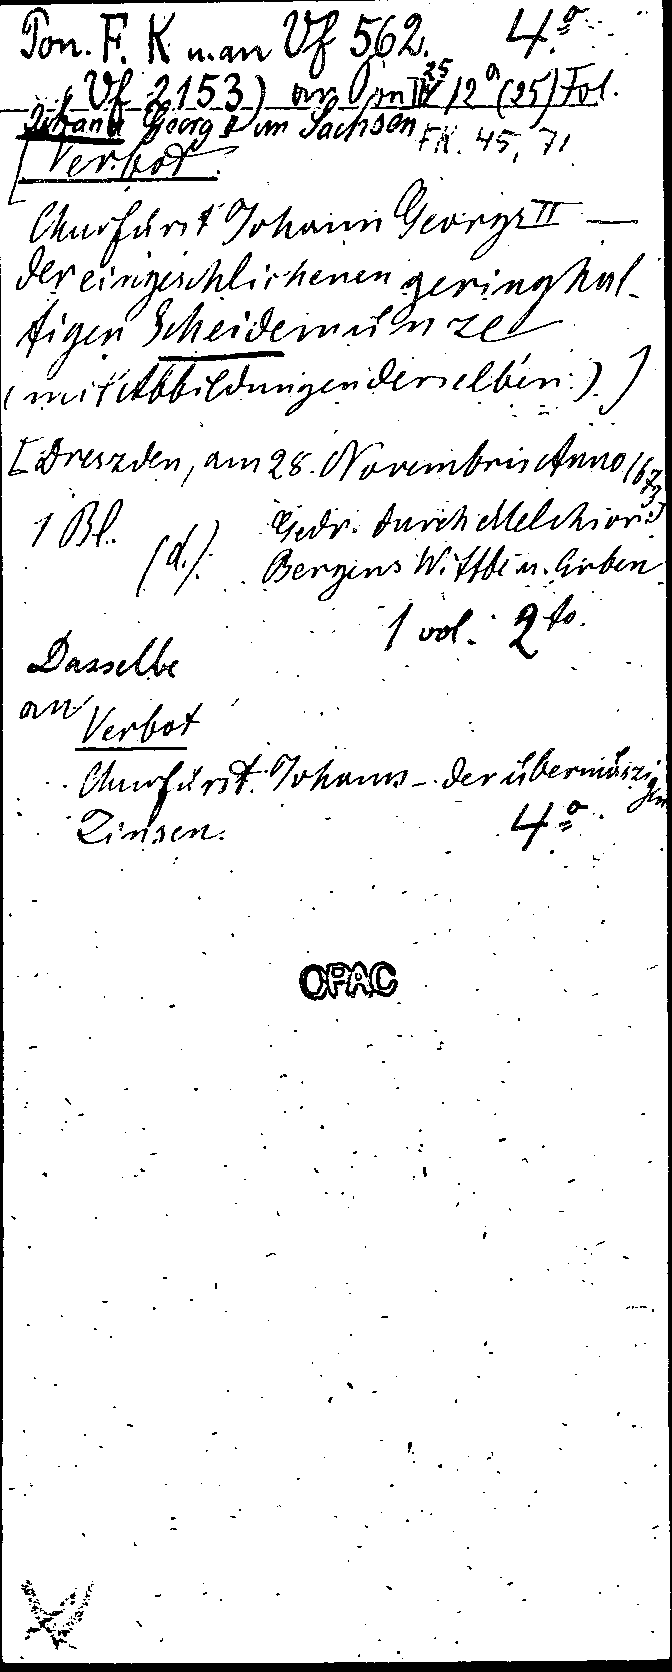 Pon. F. K u. an Vf 562. 4º
(Vf 2153) an 25 12ª (25) Fol.
Johann Georg II von Sachsen FK. 45, 71
[Verbot
Churfürst Johann Georgs II —
der eingeschlichenen geringhal-
tigen Scheidemünze
(mit Abbildungen derselben.)]
[Dreszden, am 28. Novembris Anno 1673]
1 Bl. (d.) Gedr. durch Melchior
Bergens Wittbe u. Erben
1 vol. 2to.
Dasselbe
an Verbot
Churfürst. Johanns – der übermäszigen
Zinsen. 4º
OPAC